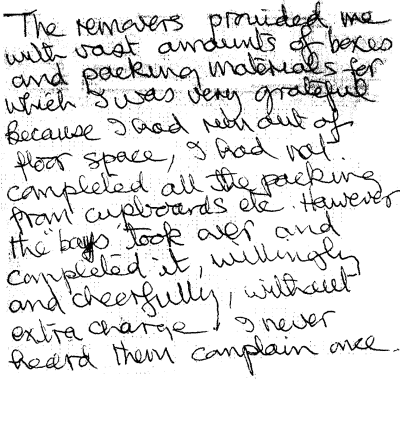 The removers provided me
with vast amounts of boxes
and packing materials for
which I was very grateful
Because I had run out of
floor space, I had not
completed all the packing
from cupboards etc. However
the "boys" took over and
completed it, willingly
and cheerfully, without
extra charge. I never
heard them complain once.